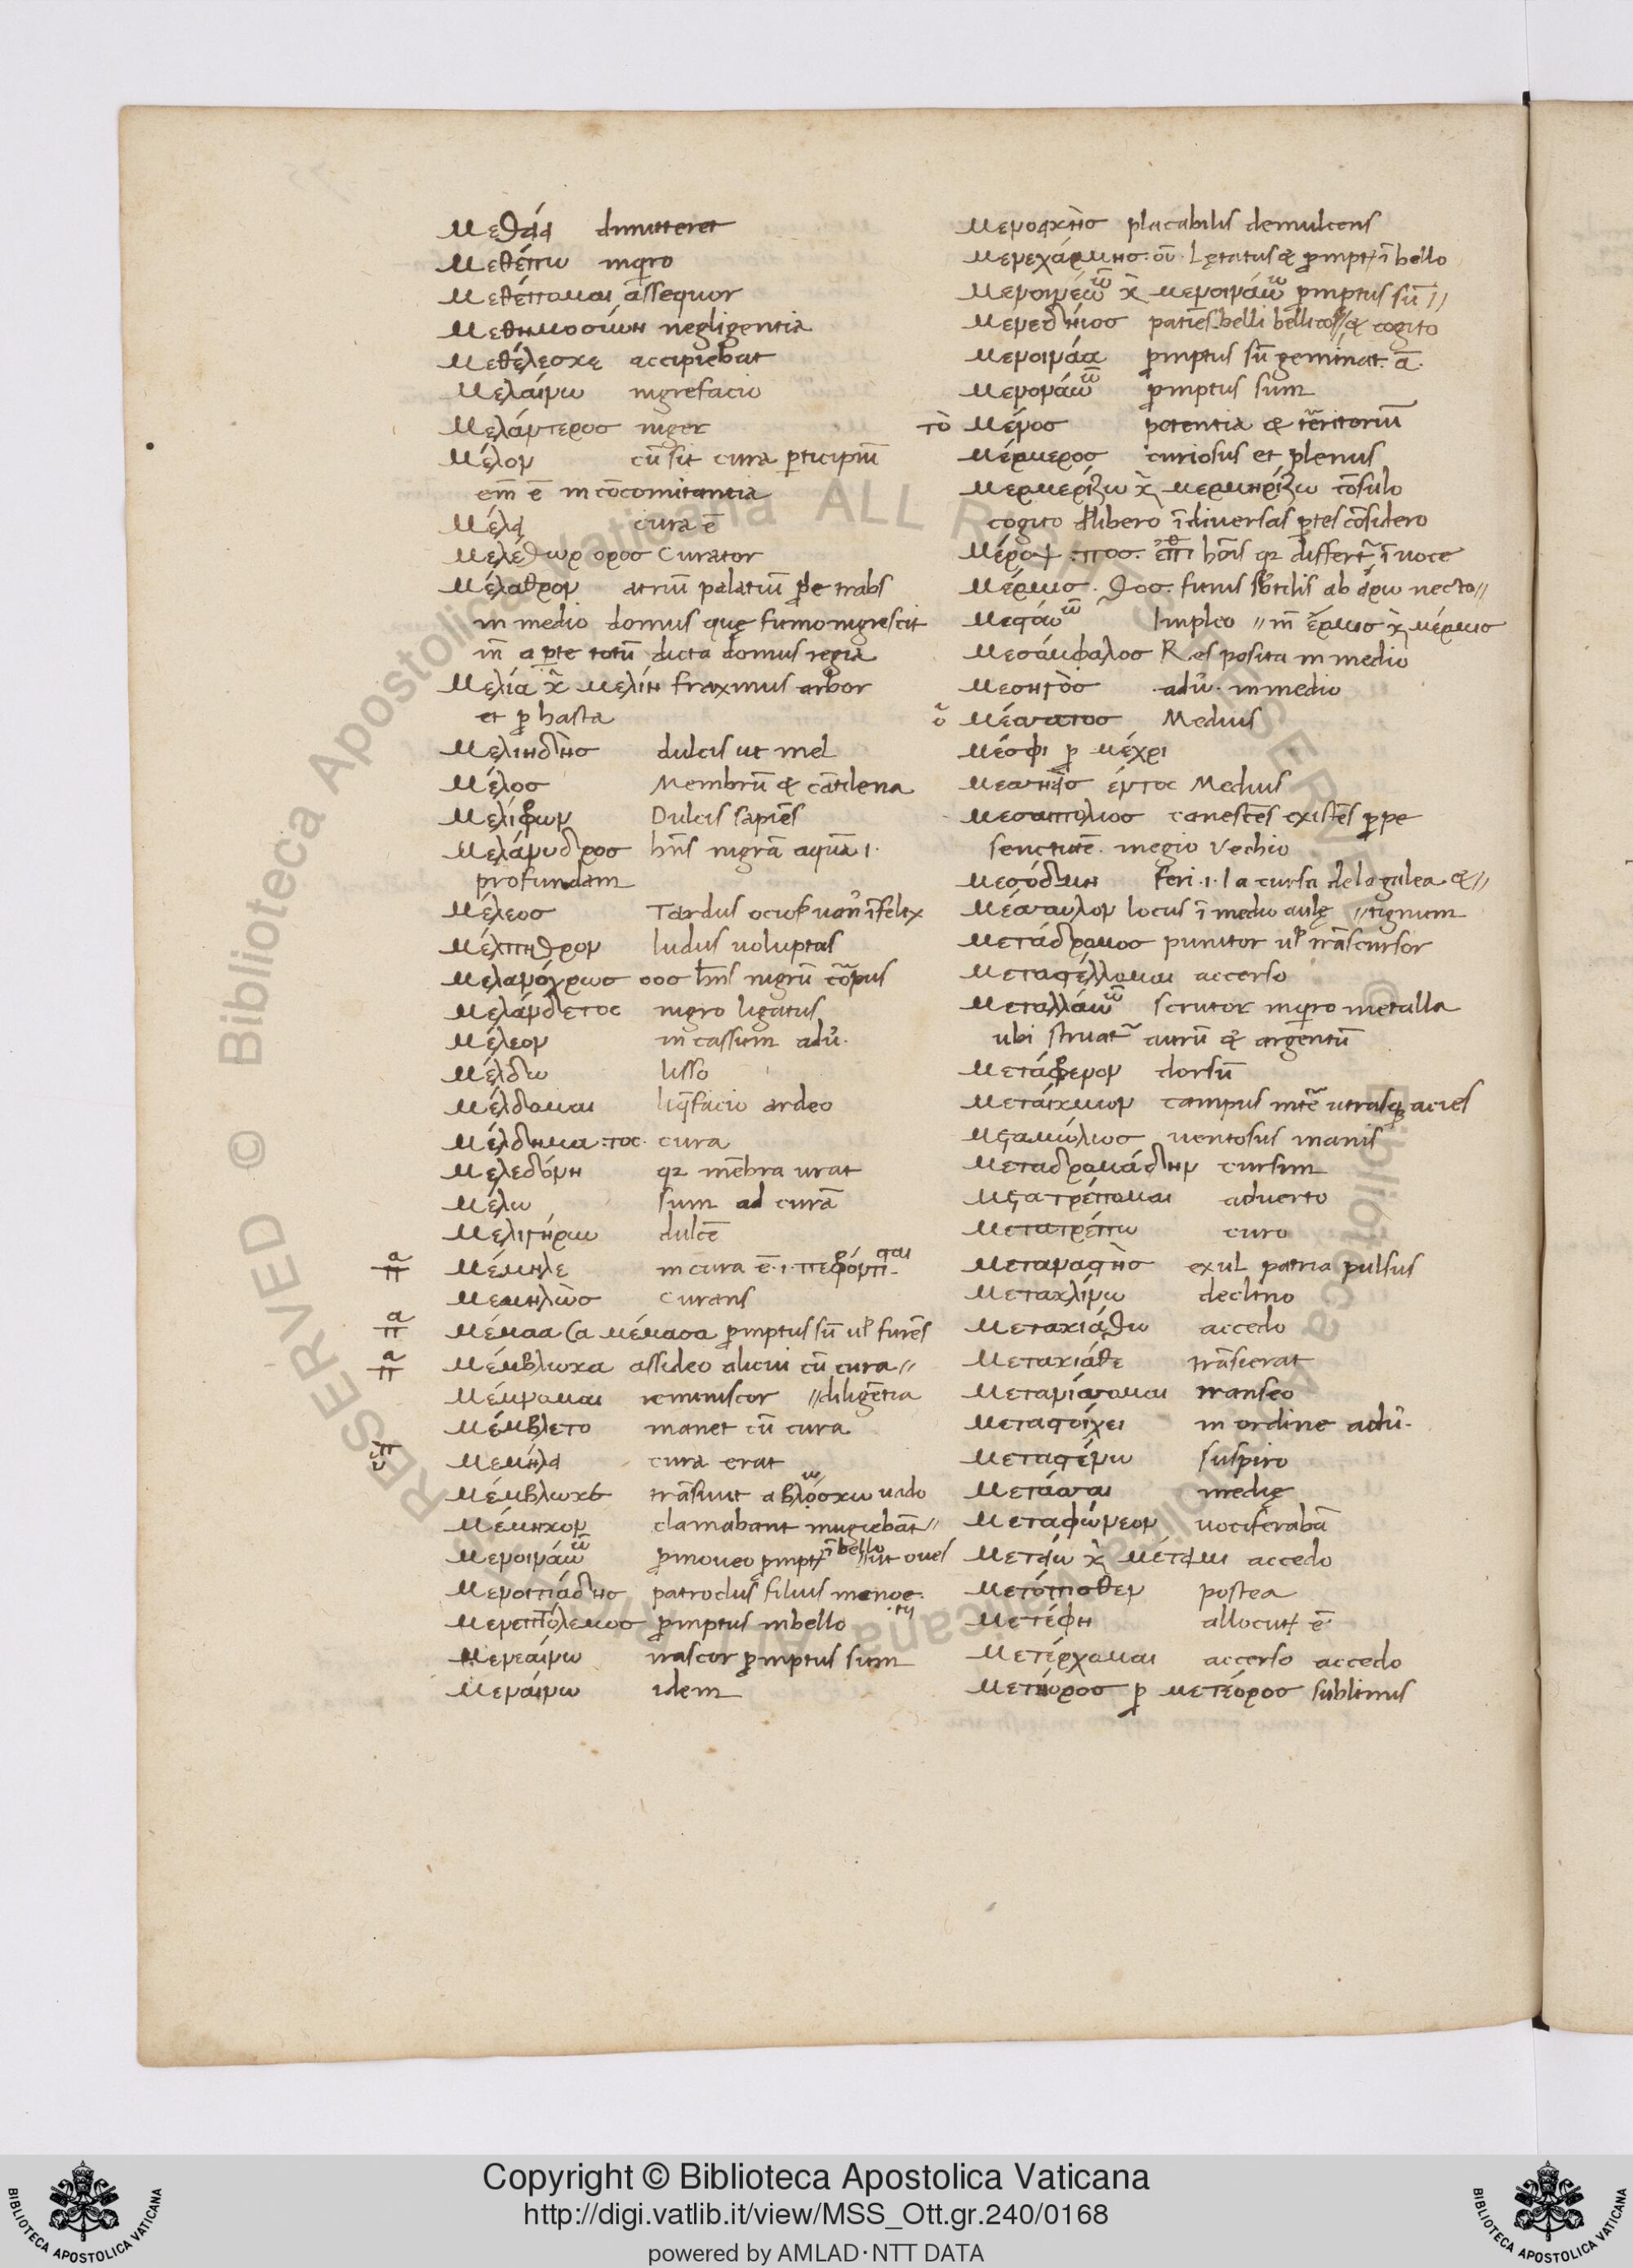 Μεθείει dimitteret
Μεθέπω inqiro
Μεθέπομαι assequor
Μεθημοσύνη negligentia
Μεθέλεσκε accipiebat
Μελαίνω nigrefacio
Μελάντερος niger
Μέλον cū sit cura ꝑticipiū
em̄ ē in cōcomitantia
Μέλει cura ē
Μελέδωρ ορος Curator
Μέλαθρον atriū palatiū trabs
in medio domus quę fumo nigrescit
a ꝑte totū dicta domus regia
Μελία κ̀ μελίη fraxinus arbor
et ꝓ hasta
Μελιηδὴς dulcis ut mel
Μέλος Membrū & cātilena
Μελίφρων Dulcis sapiēs
Μελάνυδρος hn̄s nigrā aquā .i.
profundam
Μέλεος Tardus īfelix
Μέλπηθρον ludus uoluptas
Μελανόχρως οος hn̄s nigrū
Μελάνδετος nigro ligatus
Μέλεον in cassum adu̓.
Μέλδω lisso
Μέλδομαι liq̄facio ardeo
Μέλδημα .τος. cura
Μελεδόνη mēbra urat
Μέλω sum ad curā
Μελιγήρυν dulcē
α π Μέμηλε in cura ē .ι.
Μεμηλὼς curans
α π Μέμαα μέμασα ꝓmptus sū ul̓ furēs
α π Μέμβλωκα assideo alicui cū cura //
Μέμναμαι reminiscor // diligētia
Μέμβλετο manet cū cura
Μεμήλει cura erat
Μέμβλωκε trāsiuit a βλόσκω uado
Μέμηκον clamabant mugiebāt //
Μενοινάω ꝓmoueo ꝓmpt ī bello ut oues
Μενοιτιάδης patroclus filius menoe
Μενεπτόλεμος ꝓmptus in bello .tij
Μενεαίνω irascor ꝓmptus sum
Μεναίνω idem
Μενοεικὴς placabilis demulcens
Μενεχάρμης. ου. Lętatus & ꝓmpt ī bello
Μενοινέω κ̀ μενοινάω ꝓmptus sū //
Μενεδήιος patiēs belli & cogito
Μενοινάα ꝓmptus sū geminat. ā.
Μενονάω ꝓmptus sum
τὸ Μένος potentia &
Μέρμερος curiosus et plenus
Μερμερίζω κ̀ μερμηρίζω cōsulo
cogito dl̄ibero ī diuersas ꝑtes cōsidero
Μέροψ .πος. hōis differt ī uoce
Μέρμις . θος. funis sb̄tilis ab ἔρω necto //
Μεστόω Impleo // ἔρμις κ̀ μέρμις
Μεσόμφαλος Res posita in medio
Μεσηγὺς adu̓. in medio
ὁ Μέσσατος Medius
Μέσφι ꝓ μέχρι
Μεσήεις έντος Medius
Μεσαιπόλιος canescēs existēs ꝓpe
senctutē. megio vechio
Μεσόδμη fori .i. la cursa dela galea & //
Μέσαυλον locus ī medio aulę // tignum
Μετάδρομος punitor ul̓ trāscursor
Μεταστέλλομαι accerso
Μεταλλάω scrutor inqiro metalla
ubi aurū & argentū
Μετάφρενον dorsū
Μεταίχμιον campus int̄ utrasq acies
Μεταμώλιος uentosus inanis
Μεταδρομάδην cursim
Μετατρέπομαι aduerto
Μετατρέπω curo
Μετανάστης exul patria pulsus
Μετακλίνω declino
Μετακιάθω accedo
Μετακίαθε trāsierat
Μετανίσσομαι transeo
Μεταστοίχει in ordine adu̓.
Μεταστένω suspiro
Μετάσσαι medię
Μεταφώνεον uociferabā
Μετείω κ̀ μέτειμι accedo
Μετόπισθεν postea
Μετέφη allocut ē
Μετέρχομαι accerso accedo
Μετήορος ꝓ μετέορος sublimis
Copyright © Biblioteca Apostolica Vaticana
http://digi.vatlib.it/view/MSS_Ott.gr.240/0168
powered by AMLAD·NTT DATA
BIBLIOTECA APOSTOLICA VATICANA
BIBLIOTECA APOSTOLICA VATICANA